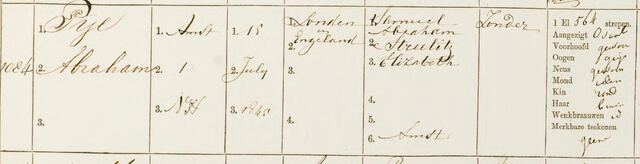 1084
1. Pije
2. Abraham
3.
1. Amst
2. 1
3. NH
1. 15
2. July
3. 1845
1. Londen
in
2. Engeland
3.
4.
1. Samuel
Abraham
2. Streelitz
3. Elizabeth
4.
5.
6. Amst
Zonder
1 El 564 strepen.
Aangezigt Ovaal
Voorhoofd gewoon
Oogen grijs
Neus gewoon
Mond idem
Kin rond
Haar bruin
Wenkbraauwen id
Merkbare teekenen
geen